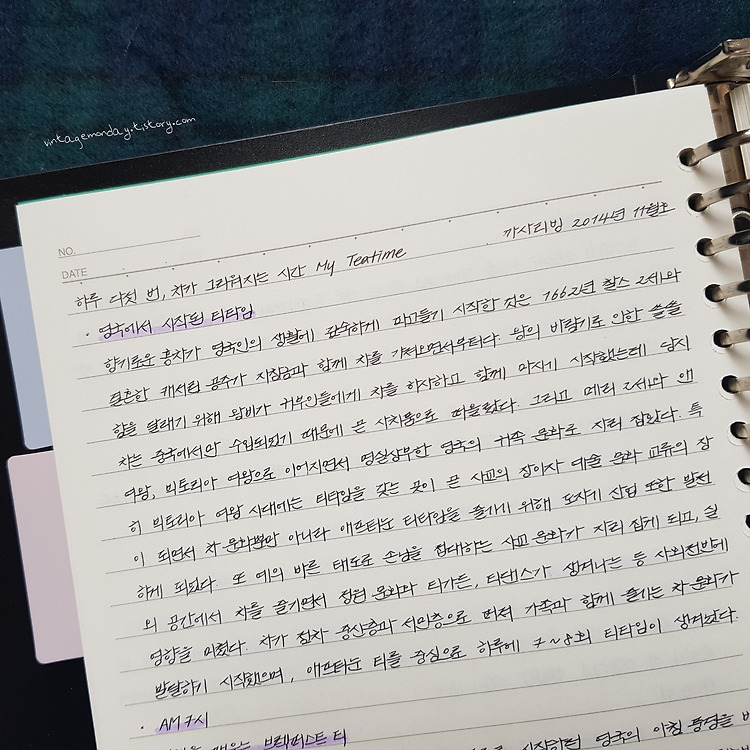 vintagemonday.tistory.com
NO.
까사리빙 2014년 11월호
DATE
하루 다섯 번, 차가 그리워지는 시간 My Teatime
· 영국에서 시작된 티타임
향기로운 홍차가 영국인의 생활에 단숨하게 파고들기 시작한 것은 1662년 찰스 2세와
결혼한 캐서린 공주가 지참금과 함께 차를 가져오면서부터다. 남의 바람기로 인한 쓸쓸
함을 달래기 위해 왕비가 귀부인들에게 차를 하사하고 함께 마시기 시작했는데 당시
차는 중국에서만 수입되었기 때문에 곧 사치품으로 떠올랐다. 그리고 메리 2세와 앤
여왕, 빅토리아 여왕으로 이어지면서 명실상부한 영국의 귀족 문화로 자리 잡았다. 특
히 빅토리아 여왕 시대에는 티타임을 갖는 곳이 곧 사교의 장이자 예술 문화 교류의 장
이 되면서 차 문화뿐만 아니라 애프터눈 티타임을 즐기기 위해 도자기 산업 또한 발전
하게 되었다. 또 예의 바른 태도로 손님을 접대하는 사교 문화가 자리 잡게 되고, 실
외 공간에서 차를 즐기면서 정원 문화와 티가든, 티댄스가 생겨나는 등 사회전반에
영향을 미쳤다. 차가 점차 중산층과 서민층으로 퍼져 가족과 함께 즐기는 차 문화가
발달하기 시작했으며, 애프터눈 티를 중심으로 하루에 7~8회의 티타임이 생겨났다.
· AM 7시
브렉퍼스트 티 시작하던 영국의 아침 풍경을